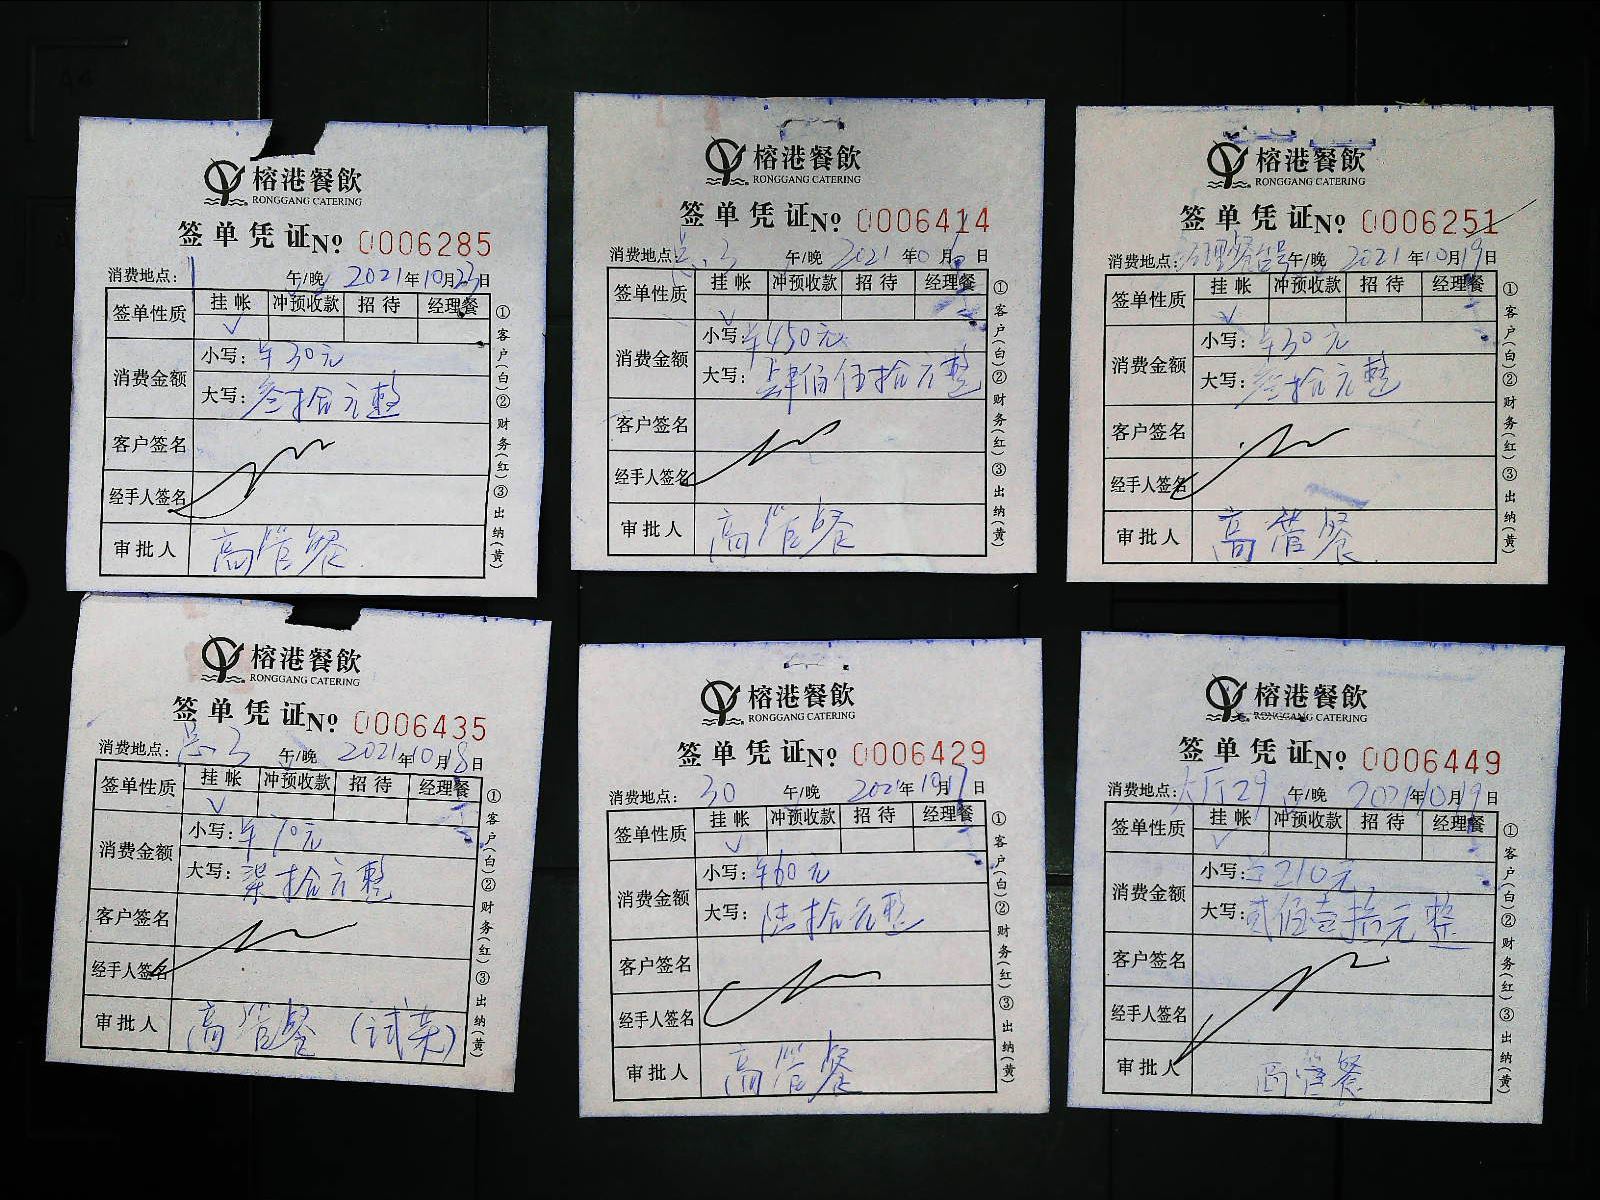 榕港餐飲
RONGGANG CATERING
签单凭证 № 0006285
消费地点: 午/晚 2021年10月23日
签单性质 挂帐 冲预收款 招待 经理餐
✓
消费金额 小写: ¥30元
大写: 叁拾元整
客户签名
经手人签名
审批人 高管餐
①客户(白)②财务(红)③出纳(黄)
榕港餐飲
RONGGANG CATERING
签单凭证 № 0006414
消费地点: 午/晚 2021年10月 日
签单性质 挂帐 冲预收款 招待 经理餐
✓
消费金额 小写: ¥450元
大写: 肆佰伍拾元整
客户签名
经手人签名
审批人 高管餐
①客户(白)②财务(红)③出纳(黄)
榕港餐飲
RONGGANG CATERING
签单凭证 № 0006251
消费地点: 午/晚 2021年10月19日
签单性质 挂帐 冲预收款 招待 经理餐
✓
消费金额 小写: ¥30元
大写: 叁拾元整
客户签名
经手人签名
审批人 高管餐
①客户(白)②财务(红)③出纳(黄)
榕港餐飲
RONGGANG CATERING
签单凭证 № 0006435
消费地点: 午/晚 2021年10月18日
签单性质 挂帐 冲预收款 招待 经理餐
✓
消费金额 小写: ¥70元
大写: 柒拾元整
客户签名
经手人签名
审批人 高管餐(试菜)
①客户(白)②财务(红)③出纳(黄)
榕港餐飲
RONGGANG CATERING
签单凭证 № 0006429
消费地点: 30 午/晚 2021年10月17日
签单性质 挂帐 冲预收款 招待 经理餐
✓
消费金额 小写: ¥60元
大写: 陆拾元整
客户签名
经手人签名
审批人 高管餐
①客户(白)②财务(红)③出纳(黄)
榕港餐飲
RONGGANG CATERING
签单凭证 № 0006449
消费地点: 大厅29 午/晚 2021年10月19日
签单性质 挂帐 冲预收款 招待 经理餐
✓
消费金额 小写: ¥210元
大写: 贰佰壹拾元整
客户签名
经手人签名
审批人 高管餐
①客户(白)②财务(红)③出纳(黄)